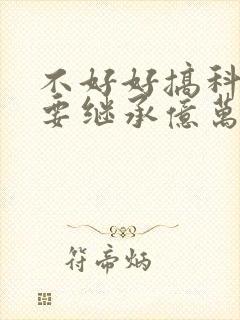 不好好搞科
要继承億萬
符帝炳